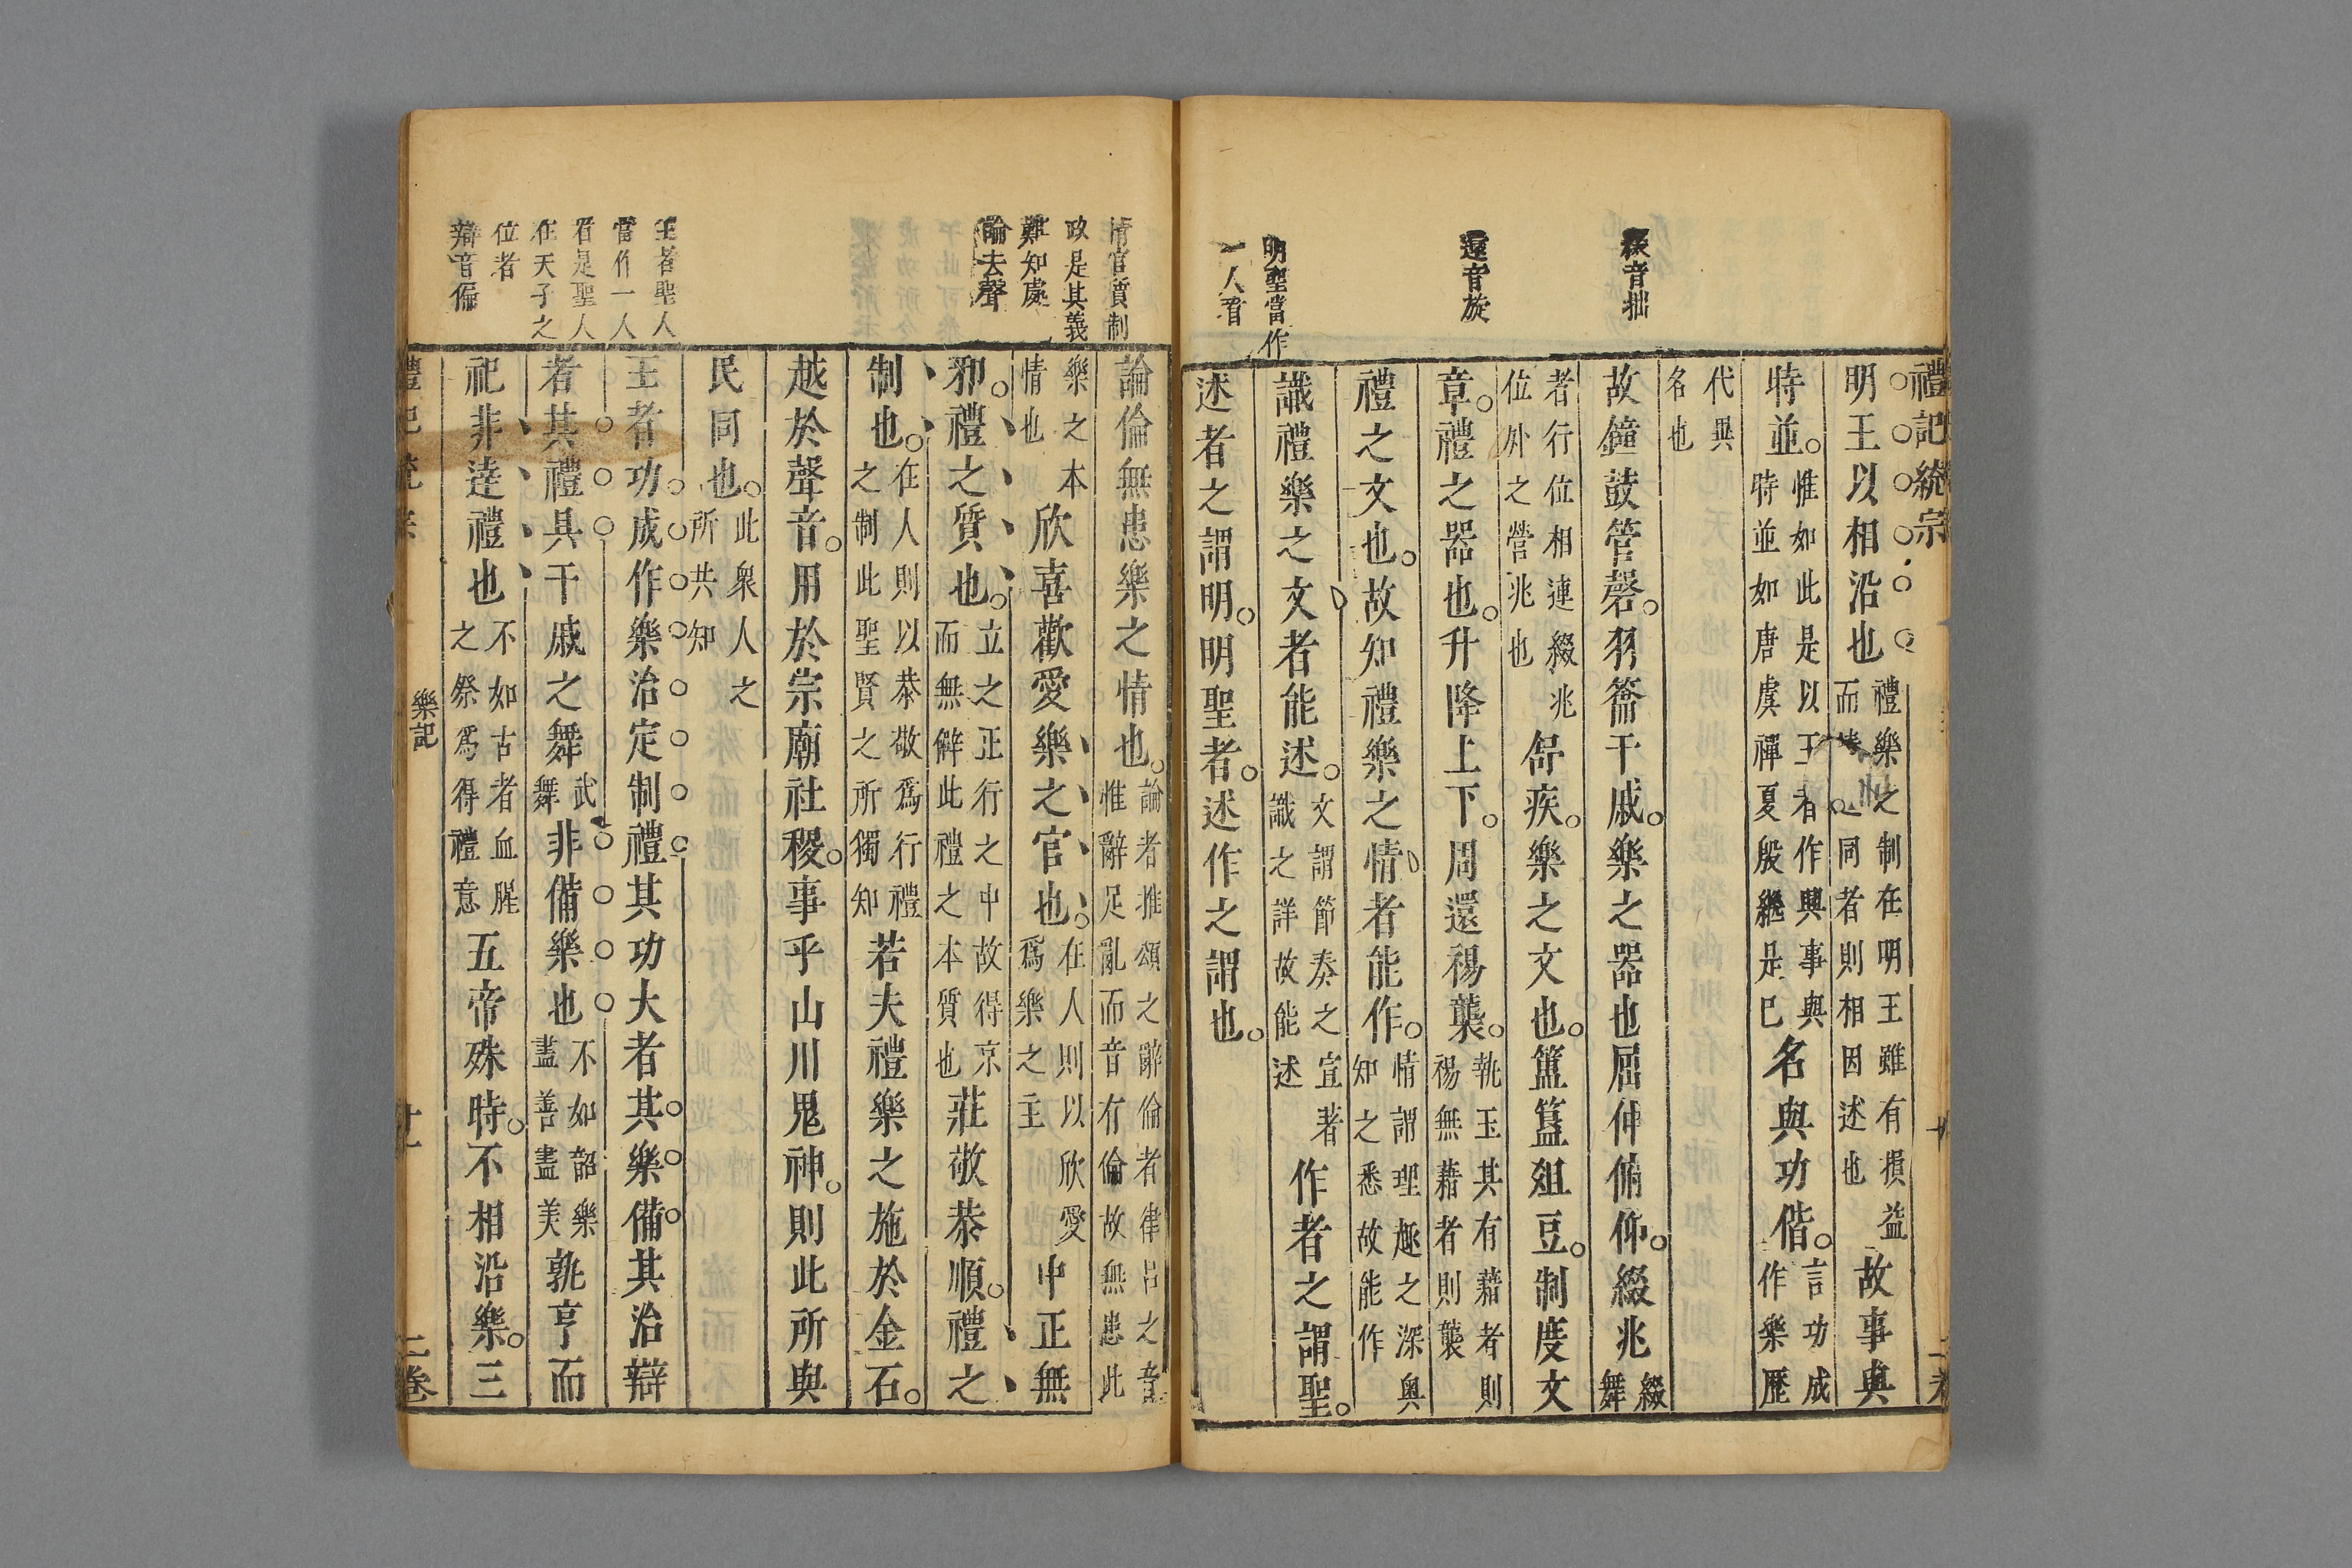 禮記統宗
綴音拙
還音旋
明聖當作
一人看
明王以相沿也禮樂之制在明王雖有損益
而同者則相因述也故事與
時並惟如此是以王者作興事與
時並如唐虞禪夏殷繼是已名與功偕言功成
作樂歷
代異
名也
故鐘鼓管磬羽籥干戚樂之器也屈伸俯仰綴兆綴
舞
者行位相連綴兆
位外之營兆也舒疾樂之文也簠簋俎豆制度文
章禮之器也升降上下周還裼襲執玉其有藉者則
裼無藉者則襲
禮之文也故知禮樂之情者能作情謂理趣之深奧
知之悉故能作
識禮樂之文者能述文謂節奏之宜著
識之詳故能述作者之謂聖
述者之謂明明聖者述作之謂也
情官質制
政是其義
難知處
論去聲
王者聖人
當作一人
看是聖人
在天子之
位者
辯音徧
論倫無患樂之情也論者雅頌之辭倫者律呂之音
惟辭足亂而音有倫故無患此
樂之本
情也欣喜歡愛樂之官也在人則以欣愛
爲樂之主中正無
邪禮之質也立之正行之中故得京
而無僻此禮之本質也莊敬恭順禮之
制也在人則以恭敬爲行禮
之制此聖賢之所獨知若夫禮樂之施於金石
越於聲音用於宗廟社稷事乎山川鬼神則此所與
民同也此衆人之
所共知
王者功成作樂治定制禮其功大者其樂備其治辯
者其禮具干戚之舞武
舞非備樂也不如韶樂
盡善盡美孰亨而
祀非達禮也不如古者血腥
之祭爲得禮意五帝殊時不相沿樂三
樂記
二卷